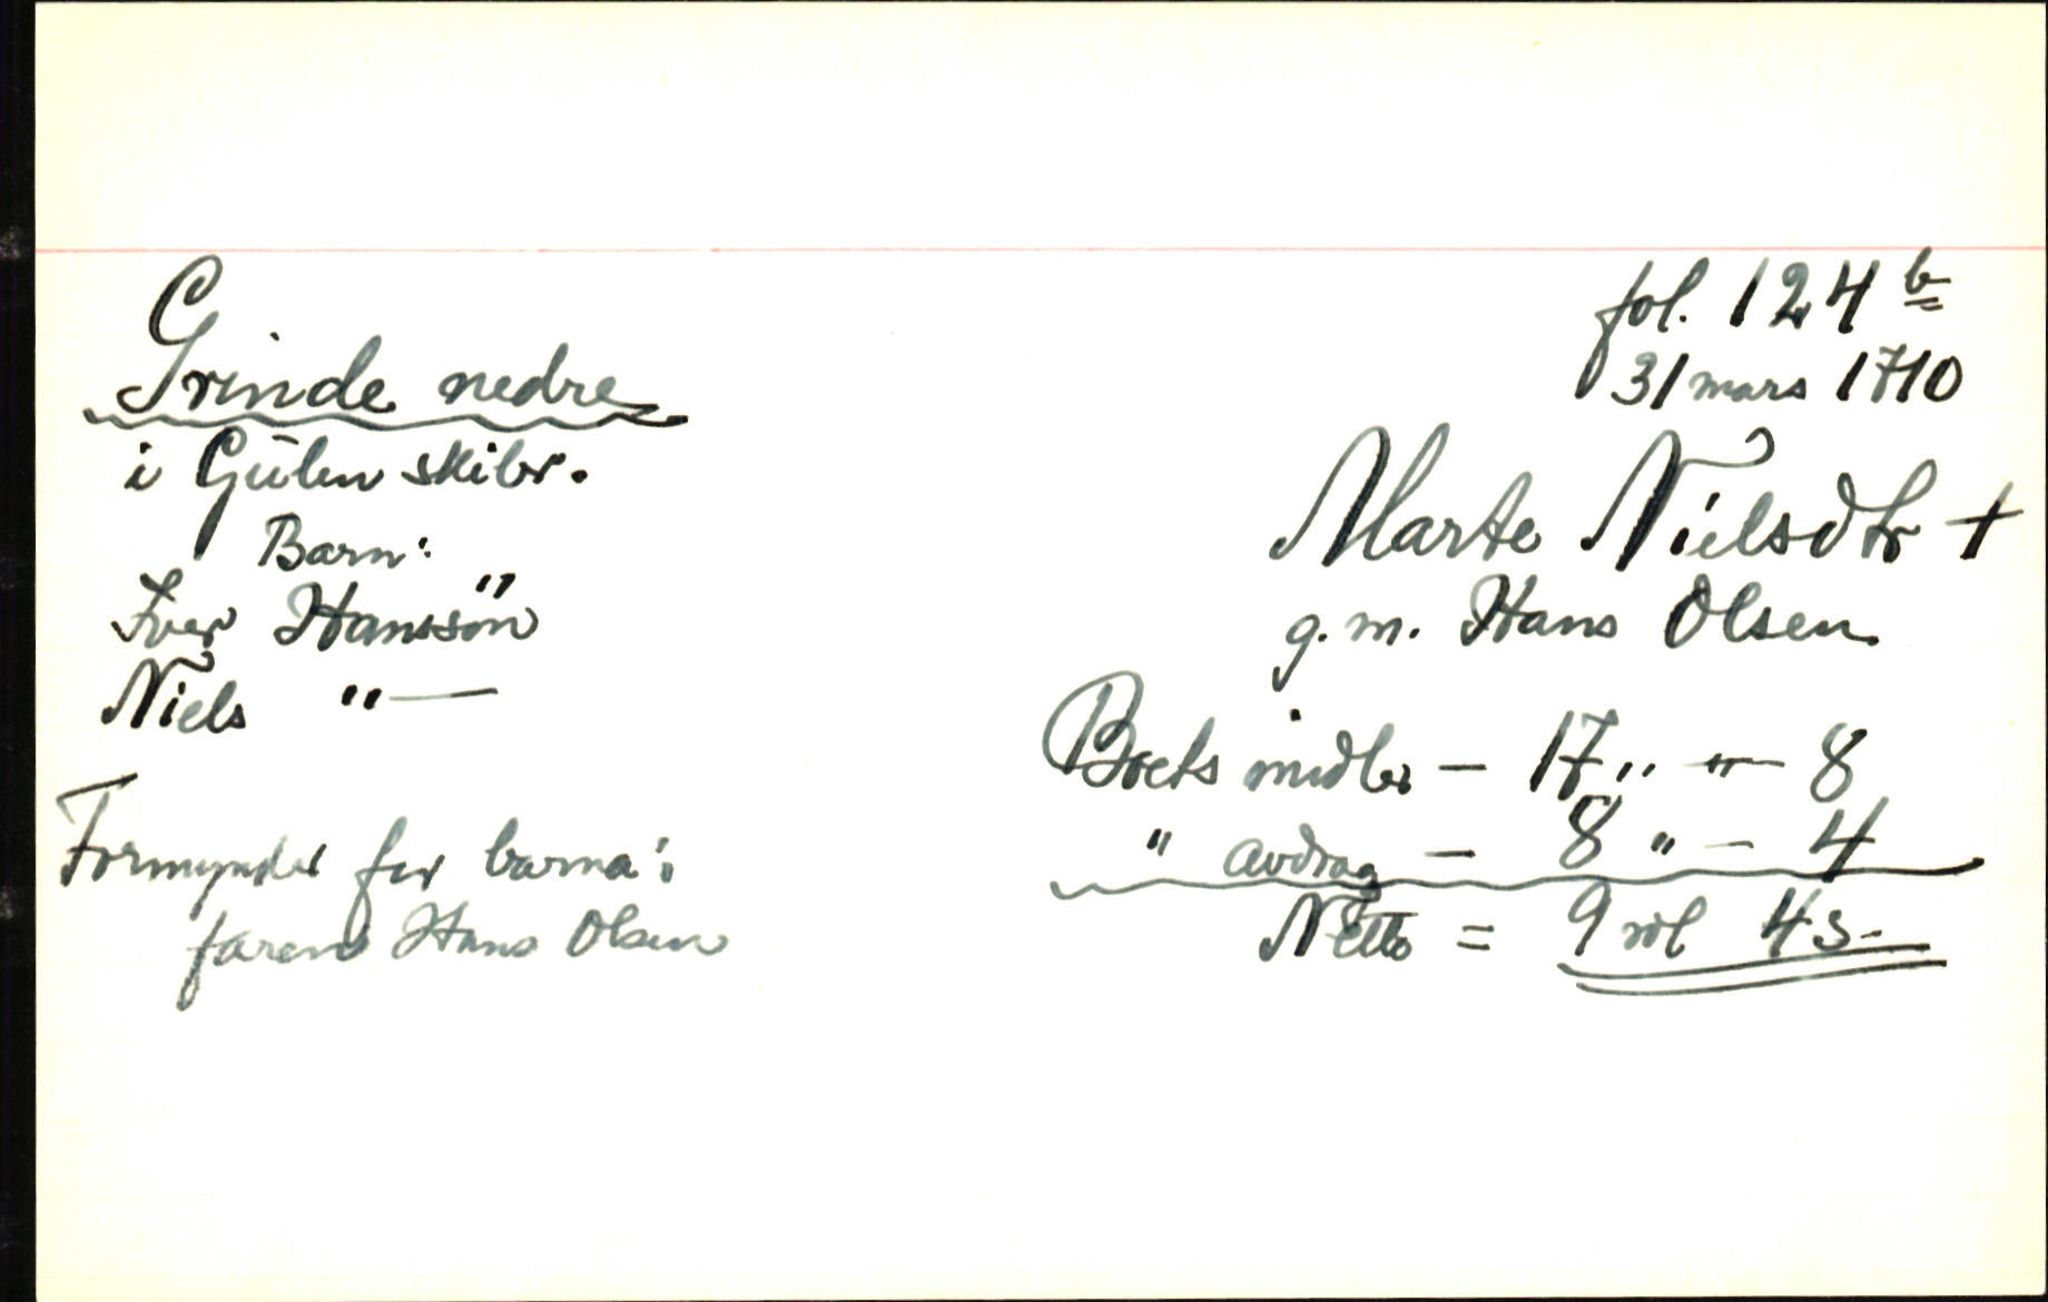 fol. 124 b
31 mars 1710
Grinde nedre
i Gulen skibr.
Marte Nielsdtr +
g. m. Hans Olsen
Barn:
Iver Hanssön
Niels " —
Boets midler — 17 " " — 8
" avdrag — 8 " — 4
Netto = 9 rdl 4 s.
Formynder for barna:
faren Hans Olsen